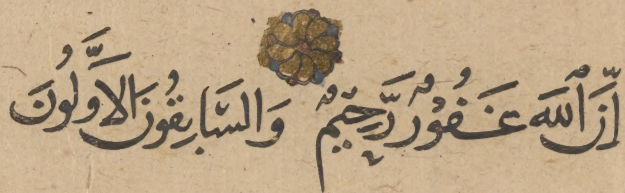 إِنَّ اللَّهَ غَفُورٌ رَّحِيمٌ وَالسَّابِقُونَ الْأَوَّلُونَ